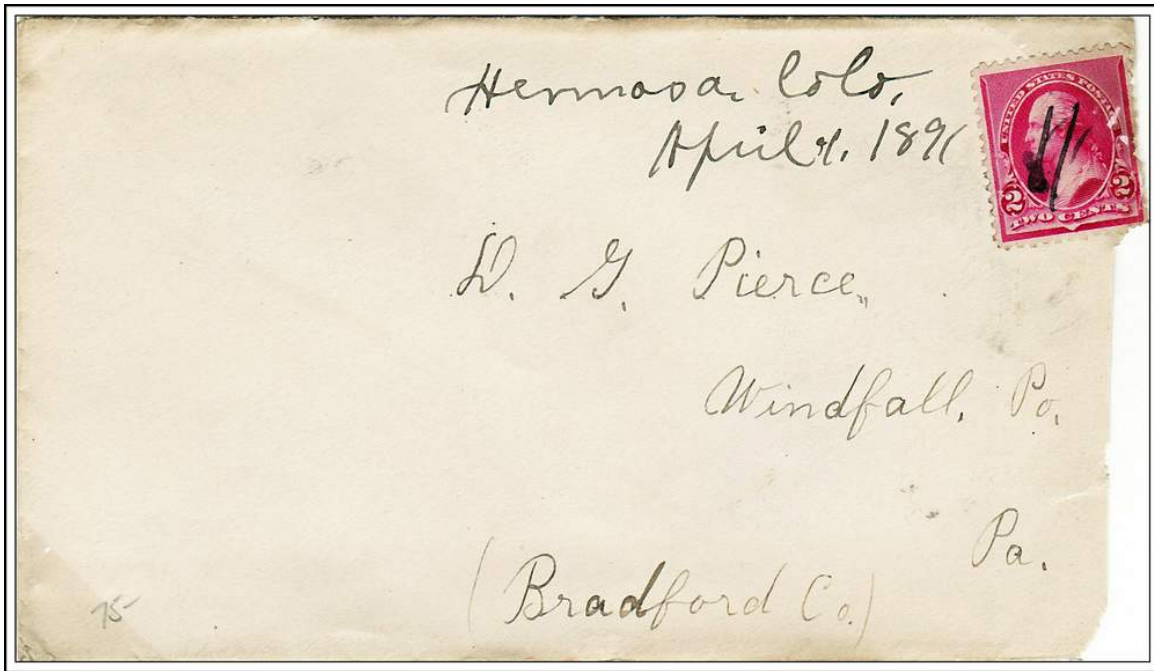 Hermosa, Colo,
April 9, 1891
UNITED STATES POSTAGE
2 2
TWO CENTS
D. G. Pierce,
Windfall, Po,
Pa.
(Bradford Co.)
75